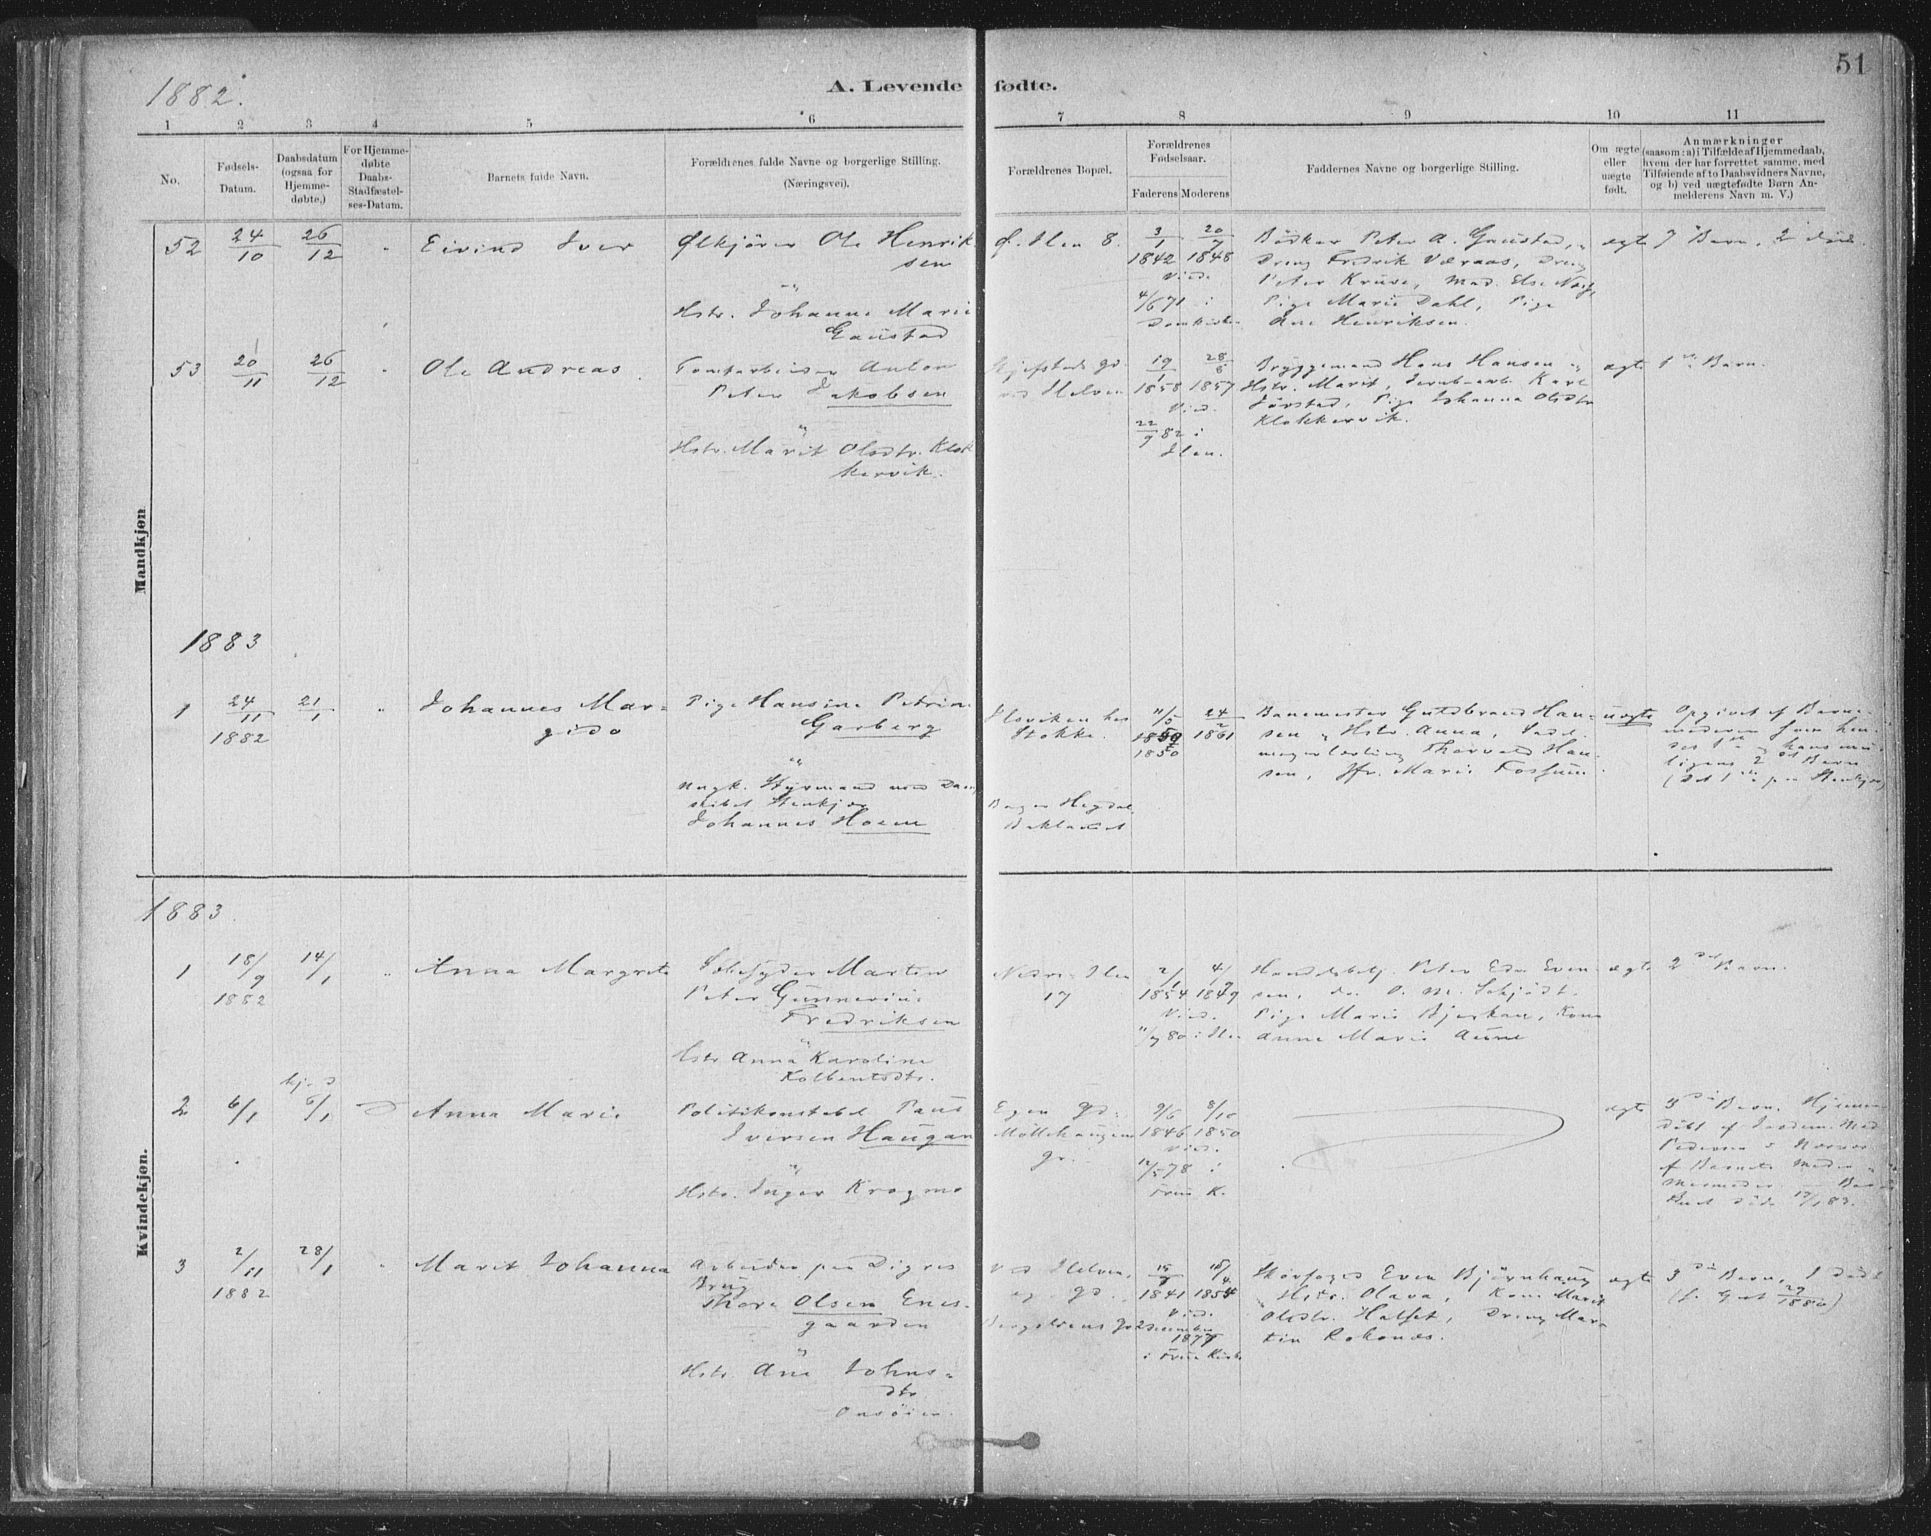 1882.
A. Levende fødte.
51
1 2 3 4 5 6 7 8 9 10 11
No.
Fødsels-
Datum.
Daabsdatum
(ogsaa for
Hjemme-
døbte.)
For Hjemme-
døbte
Daabs-
Stadfæstel-
ses-Datum.
Barnets fulde Navn.
Forældrenes fulde Navne og borgerlige Stilling.
(Næringsvei).
Forældrenes Bopæl.
Forældrenes
Fødselsaar.
Faderens Moderens
Faddernes Navne og borgerlige Stilling.
Om ægte
eller
uægte
født.
Anmærkninger
(saasom: a) i Tilfælde af Hjemmedaab,
hvem der har forrettet samme, med
Tilføiende af to Daabsvidners Navne,
og b) ved uægtefødte Børn An-
melderens Navn m. V.)
Mandkjøn
52
24/10
26/12
"
Eivind Iver
Ølkjører Ole Henrik
sen
"
Hstr. Johanne Marie
Gaustad
Ø. Ilen 8.
3/1 20/7
1842 1848
Vied.
4/6 71 i
Domkirken
Bödker Peter A. Gaustad, "
Dreng Fredrik Væraas, Dreng
Peter Kruse, Mad. Else
Pige Marie Dahl, Pige
Ane Henriksen.
ægte
7 Barn, 2 död.
53
20/11
26/12
"
Ole Andreas
Tomtarbeider Anton
Peter Jakobsen
"
Hstr. Marit Olsdtr. Klok
kervik.
gd.
ved Ilelven
19/1 28/5
1858 1857
Vied.
22/9 82 i
Ilen.
Bryggemand Hans Hansen "
Hstr. Marit, Jernb.arb. Karl
Jørstad, Pige Johanna Olsdtr
Klokkervik.
ægte
1ste Barn.
1883
1
24/11
1882
21/1
"
Johannes Mar-
gido
Pige Hansine Petrine
Garberg
"
Ungk. Styrmand med Dam
skibet Stenkjær
Johannes Hoem
Ilsviken hos
Stokke.
Bager Hegdal
Baklandet
11/5 24/2
1859 1861
1850
Banemester Guldbrand Han-
sen, Hstr. Anna, Sadel
magerlærling Thorvald Han-
sen, Jfr. Marie Fossum.
uægte
Opgivet af Barne
moderen som hen-
des 1ste og hans
2det Barn
(Det 1ste paa Stenkjær)
Kvindekjøn.
1883.
1
18/9
1882
14/1
"
Anna Margrete
Martin
Peter Gunnerius
Fredriksen
"
Hstr Anna Karoline
Kolbentsdtr.
Nedre Ilen
17
2/1 4/9
1854 1849
Vied.
11/7 80 i Ilen
Handelsbetj. Peter Edv. Even
sen, do. O. M. Schjödt.
Pige Marie Bjerkan, Kone
Anne Marie Aune
ægte
2det Barn.
2
6/1
hj. d
6/1
Anna Marie
Politikonstabel Paul
Iversen Haugan
"
Hstr. Inger Kragmo
Egen gd.
Möllehaugen
gr.
9/6 8/10
1846 1850
Vied.
12/5 78 i
Frue K.
ægte
3die Barn. Hjemme
döbt af Jordem. Mad
Pedersen i Nærvær
af Barnets Moder "
Mormoder — Bar
net döde 17/1 83.
3
2/11
1882
28/1
"
Marit Johanna
Arbeider paa Digres
Brug
Thore Olsen Enes-
gaarden
"
Hstr. Ane Johns-
dtr.
Onsöien.
Ved Ilelven,
eg. gd.
15/7 18/4
1841 1854
Vied.
December
1877
i Frue Kirke
Skovfoged Even Björnhaug
Hstr. Olava, Kone Marit
Olsdtr. Halset, Dreng Mar-
tin Rokones.
ægte
3die Barn, 1 död